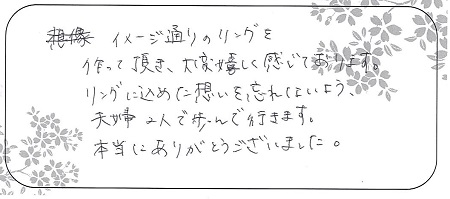 想像 イメージ通りのリングを
作って頂き、大変嬉しく感じております。
リングに込めた想いを忘れないよう、
夫婦2人で歩んで行きます。
本当にありがとうございました。